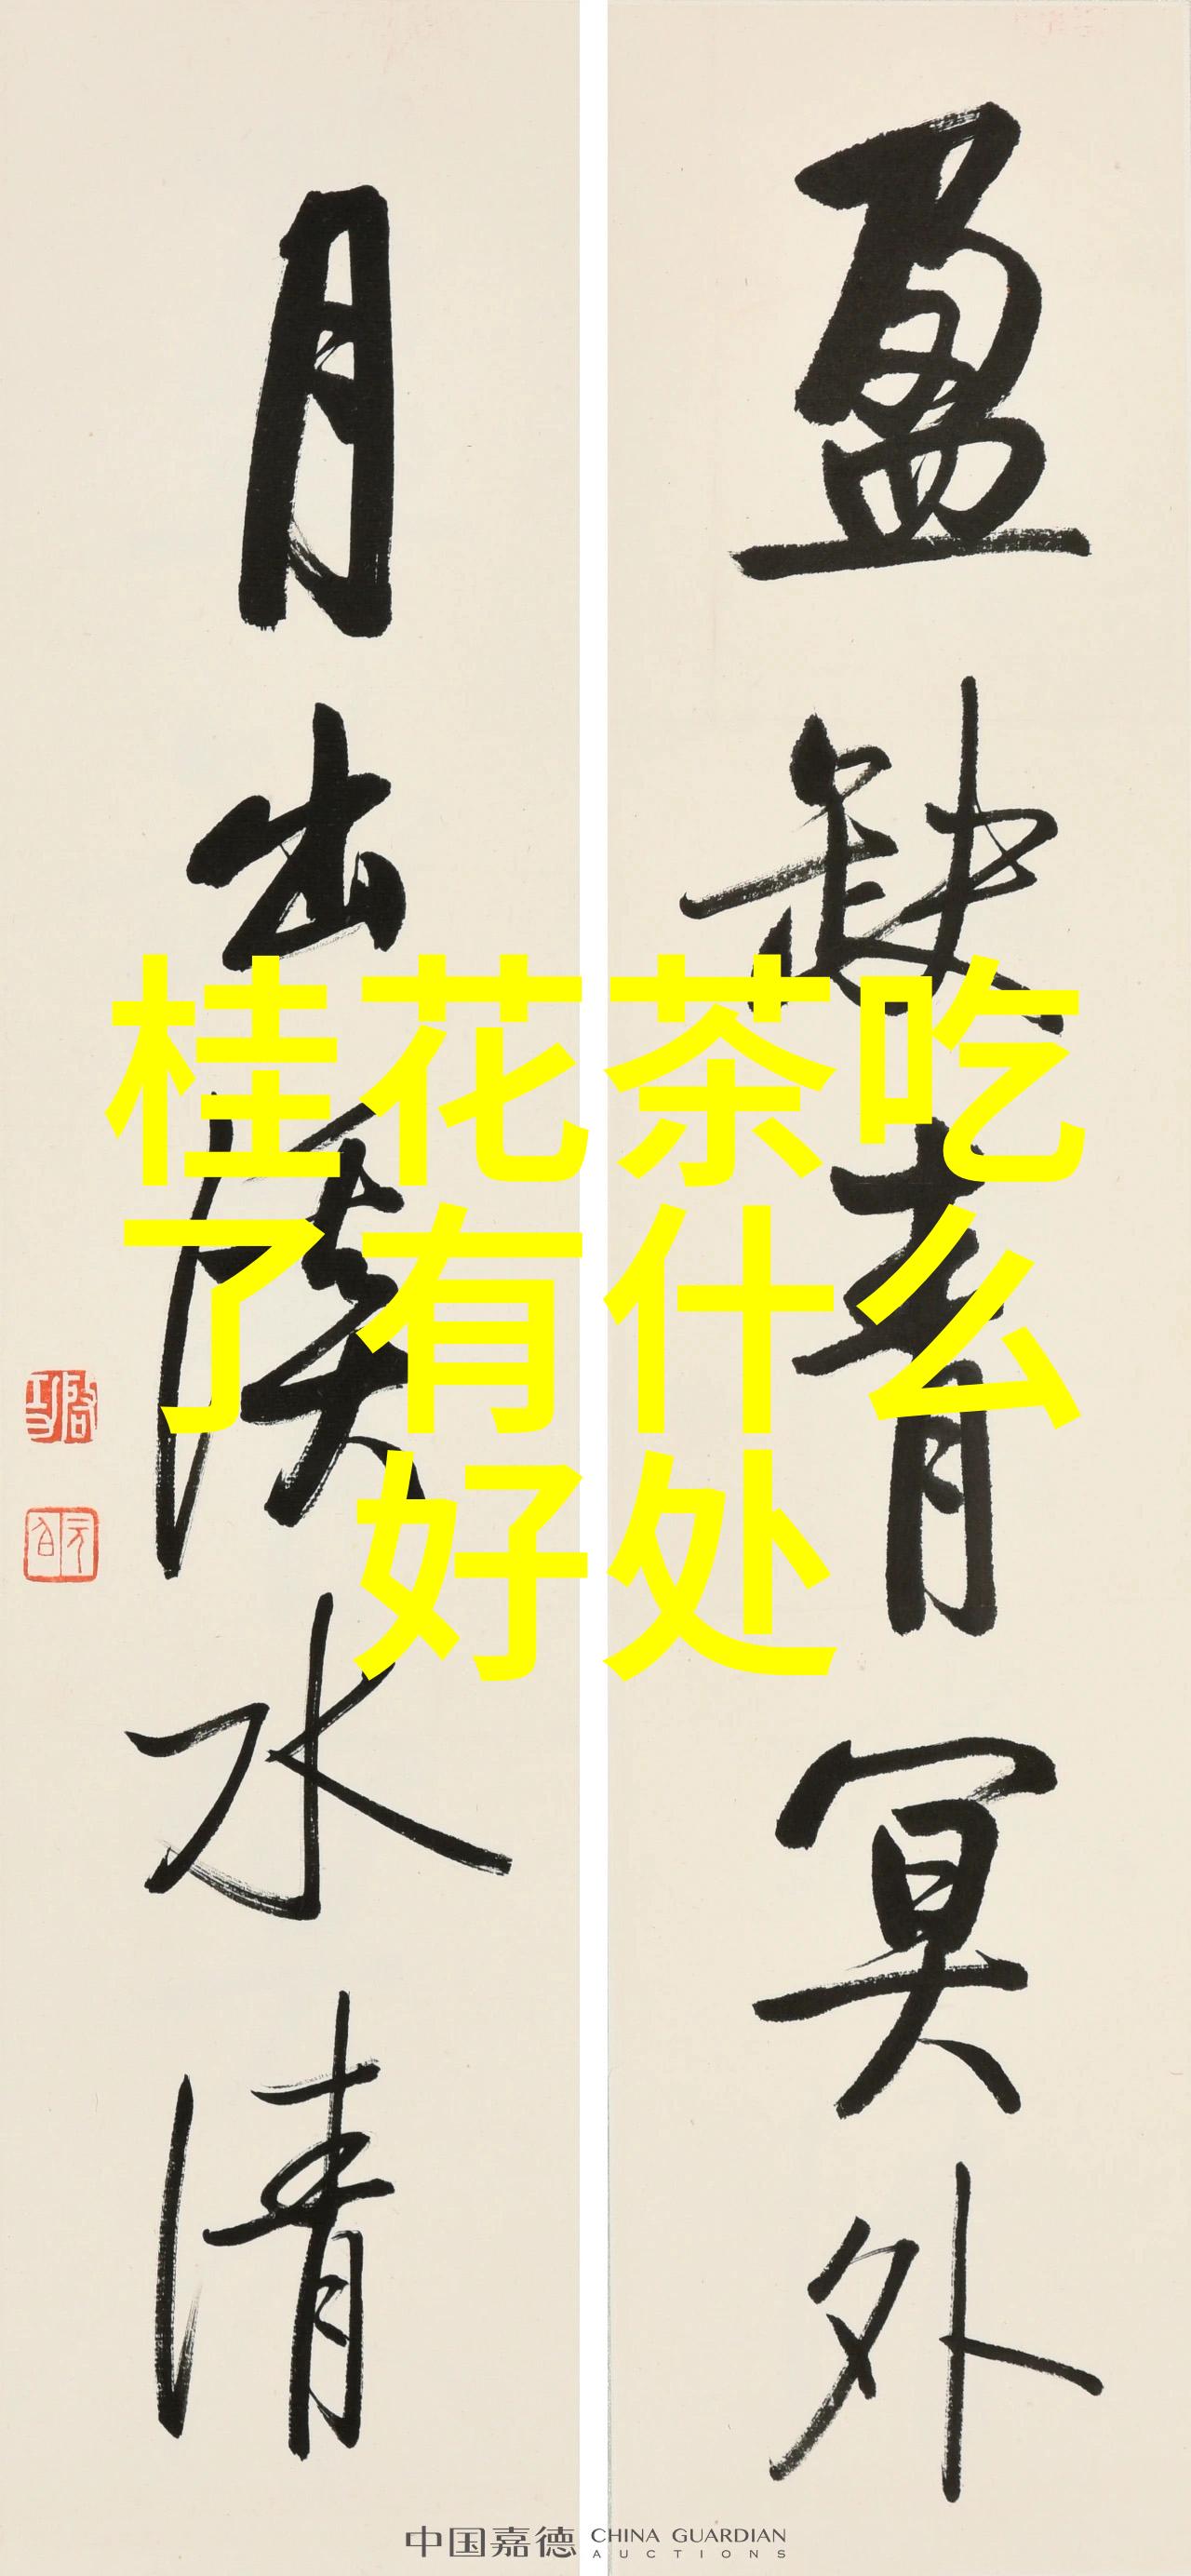 盈缺青冥外
月出溪水清
啟功
元白
桂花茶吃
了有什么
好处
中国嘉德 CHINA GUARDIAN
AUCTIONS